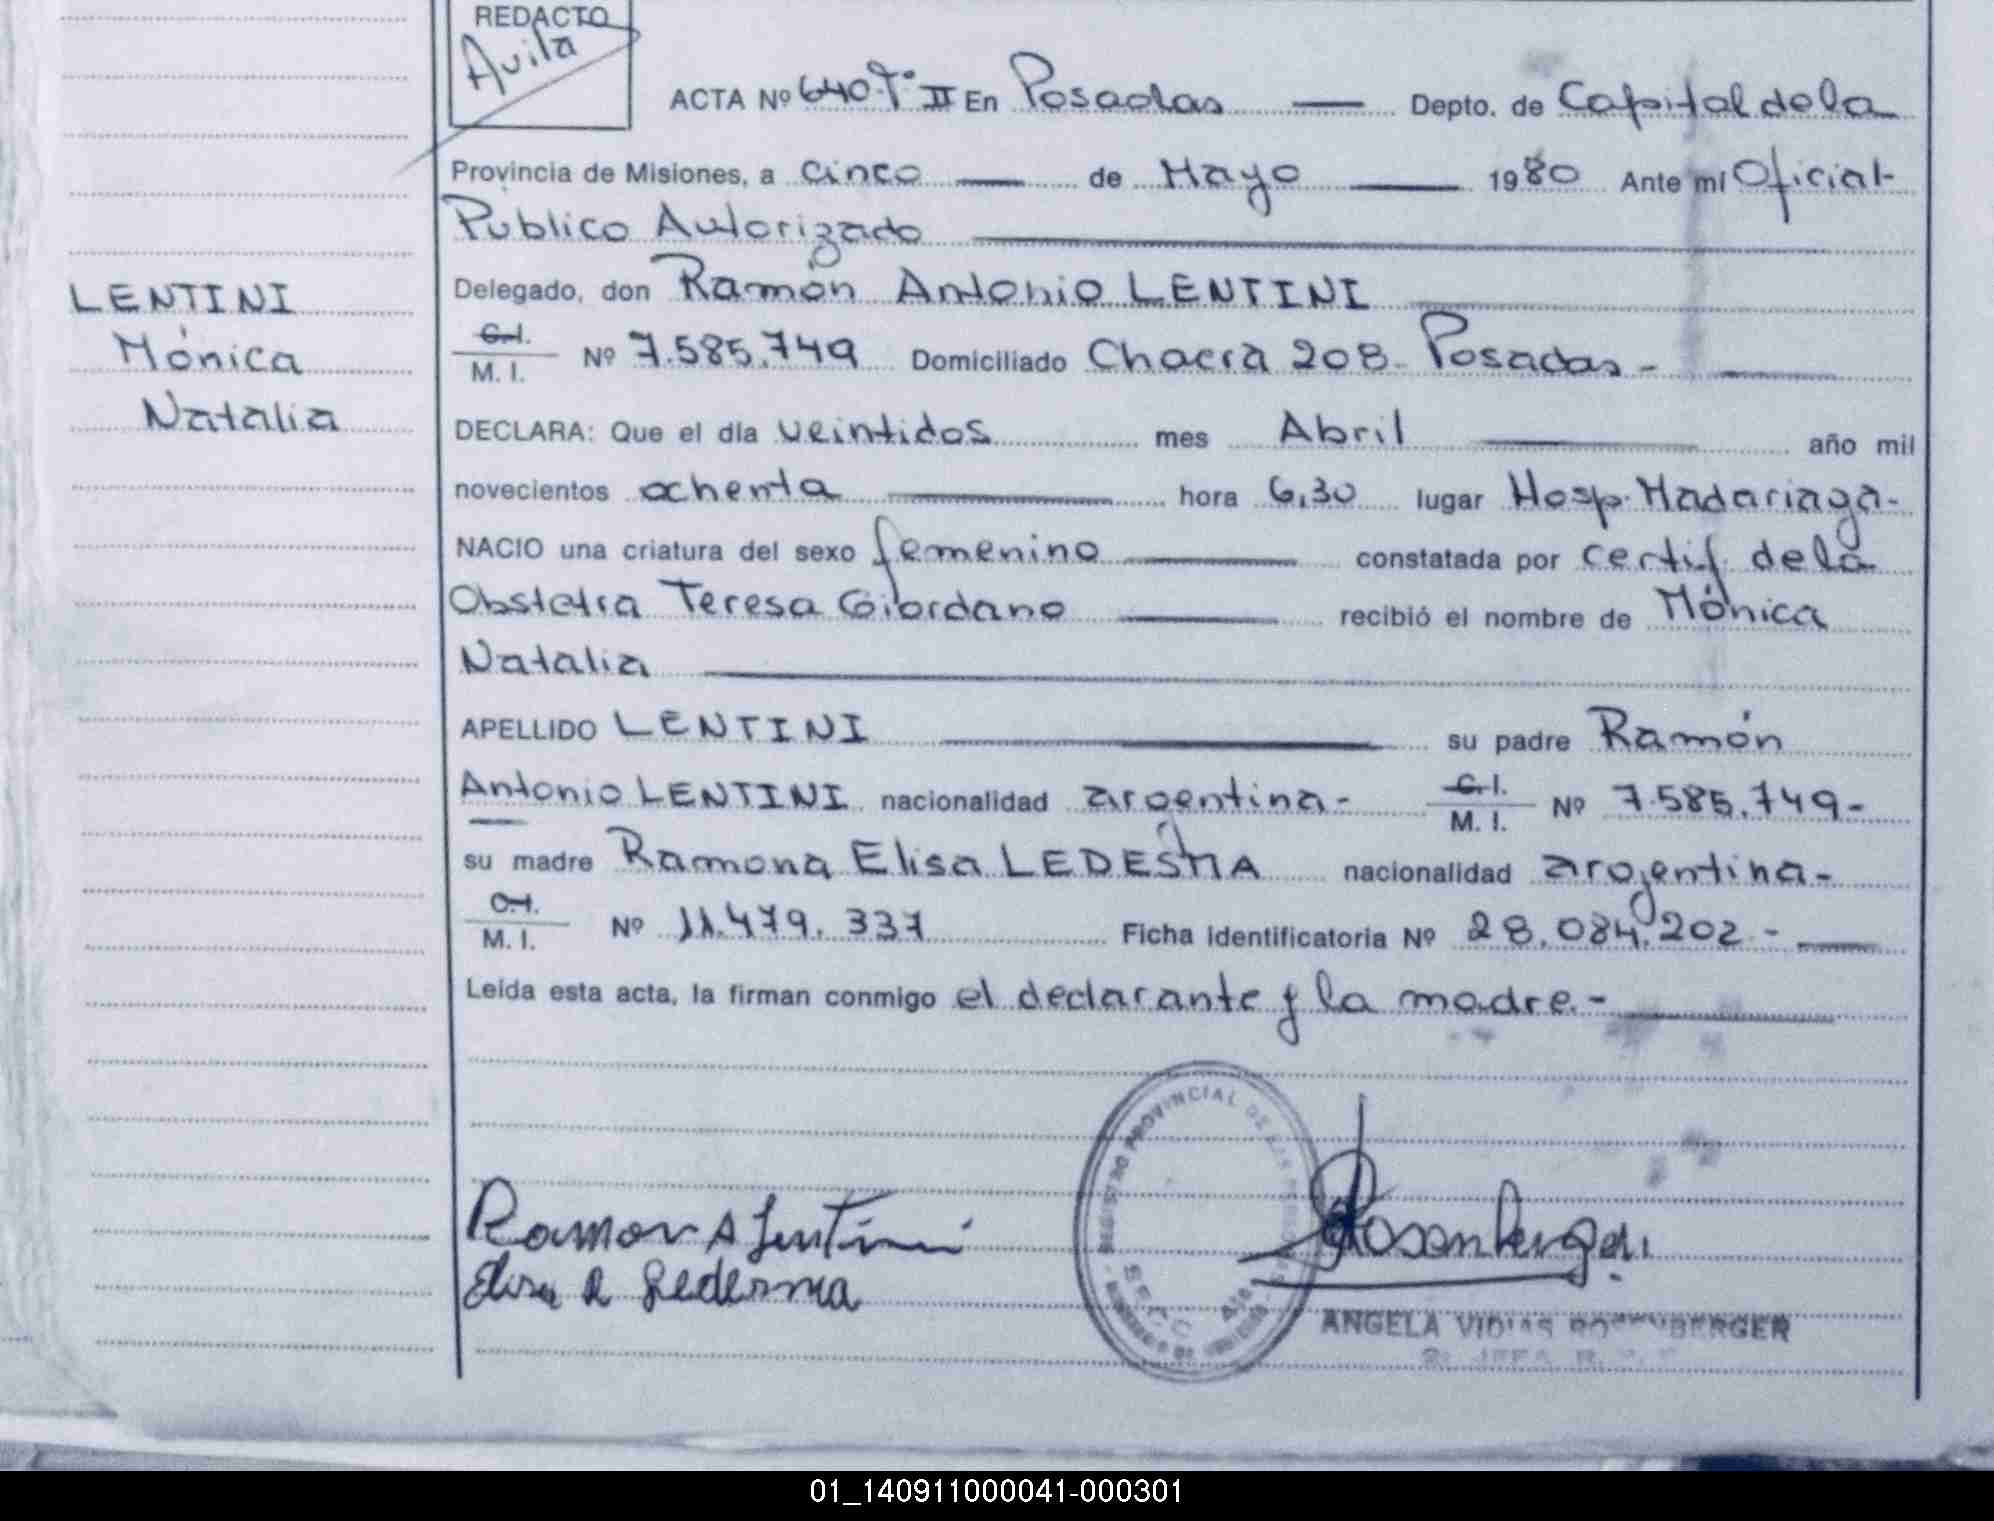 REDACTO
Avila
ACTA Nº 640 Tº II En Posadas Depto. de Capital de la
Provincia de Misiones, a cinco de Mayo 1980 Ante mí Oficial-
Publico Autorizado
LENTINI
Mónica
Natalia
Delegado, don Ramón Antonio LENTINI
C.I.
M. I. Nº 7.585.749 Domiciliado Chacra 208- Posadas-
DECLARA: Que el día veintidos mes Abril año mil
novecientos ochenta hora 6,30 lugar Hosp. Madariaga-
NACIO una criatura del sexo femenino constatada por certif. de la
Obstetra Teresa Giordano recibió el nombre de Mónica
Natalia
APELLIDO LENTINI su padre Ramón
Antonio LENTINI nacionalidad argentina- C.I.
M. I. Nº 7.585.749-
su madre Ramona Elisa LEDESMA nacionalidad argentina-
C.I.
M. I. Nº 11.479.337 Ficha Identificatoria Nº 28.084.202-
Leída esta acta, la firman conmigo el declarante y la madre.-
REGISTRO PROVINCIAL DE LAS PERSONAS
SECC
Ramon A Lentini
Elisa R Ledesma
Rosenberger
ANGELA VIDIAS ROSENBERGER
JEFA
01_140911000041-000301